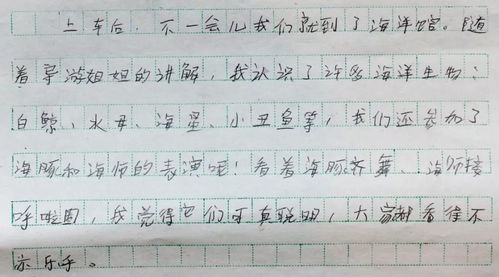 上车后,不一会儿我们就到了海洋馆。随
着导游姐姐的讲解,我认识了许多海洋生物:
白鲸、水母、海星、小丑鱼等,我们还参加了
海豚和海狮的表演呢!看着海豚齐舞、海狮接
呼啦圈,我觉得它们可真聪明,大家都看得不
亦乐乎。